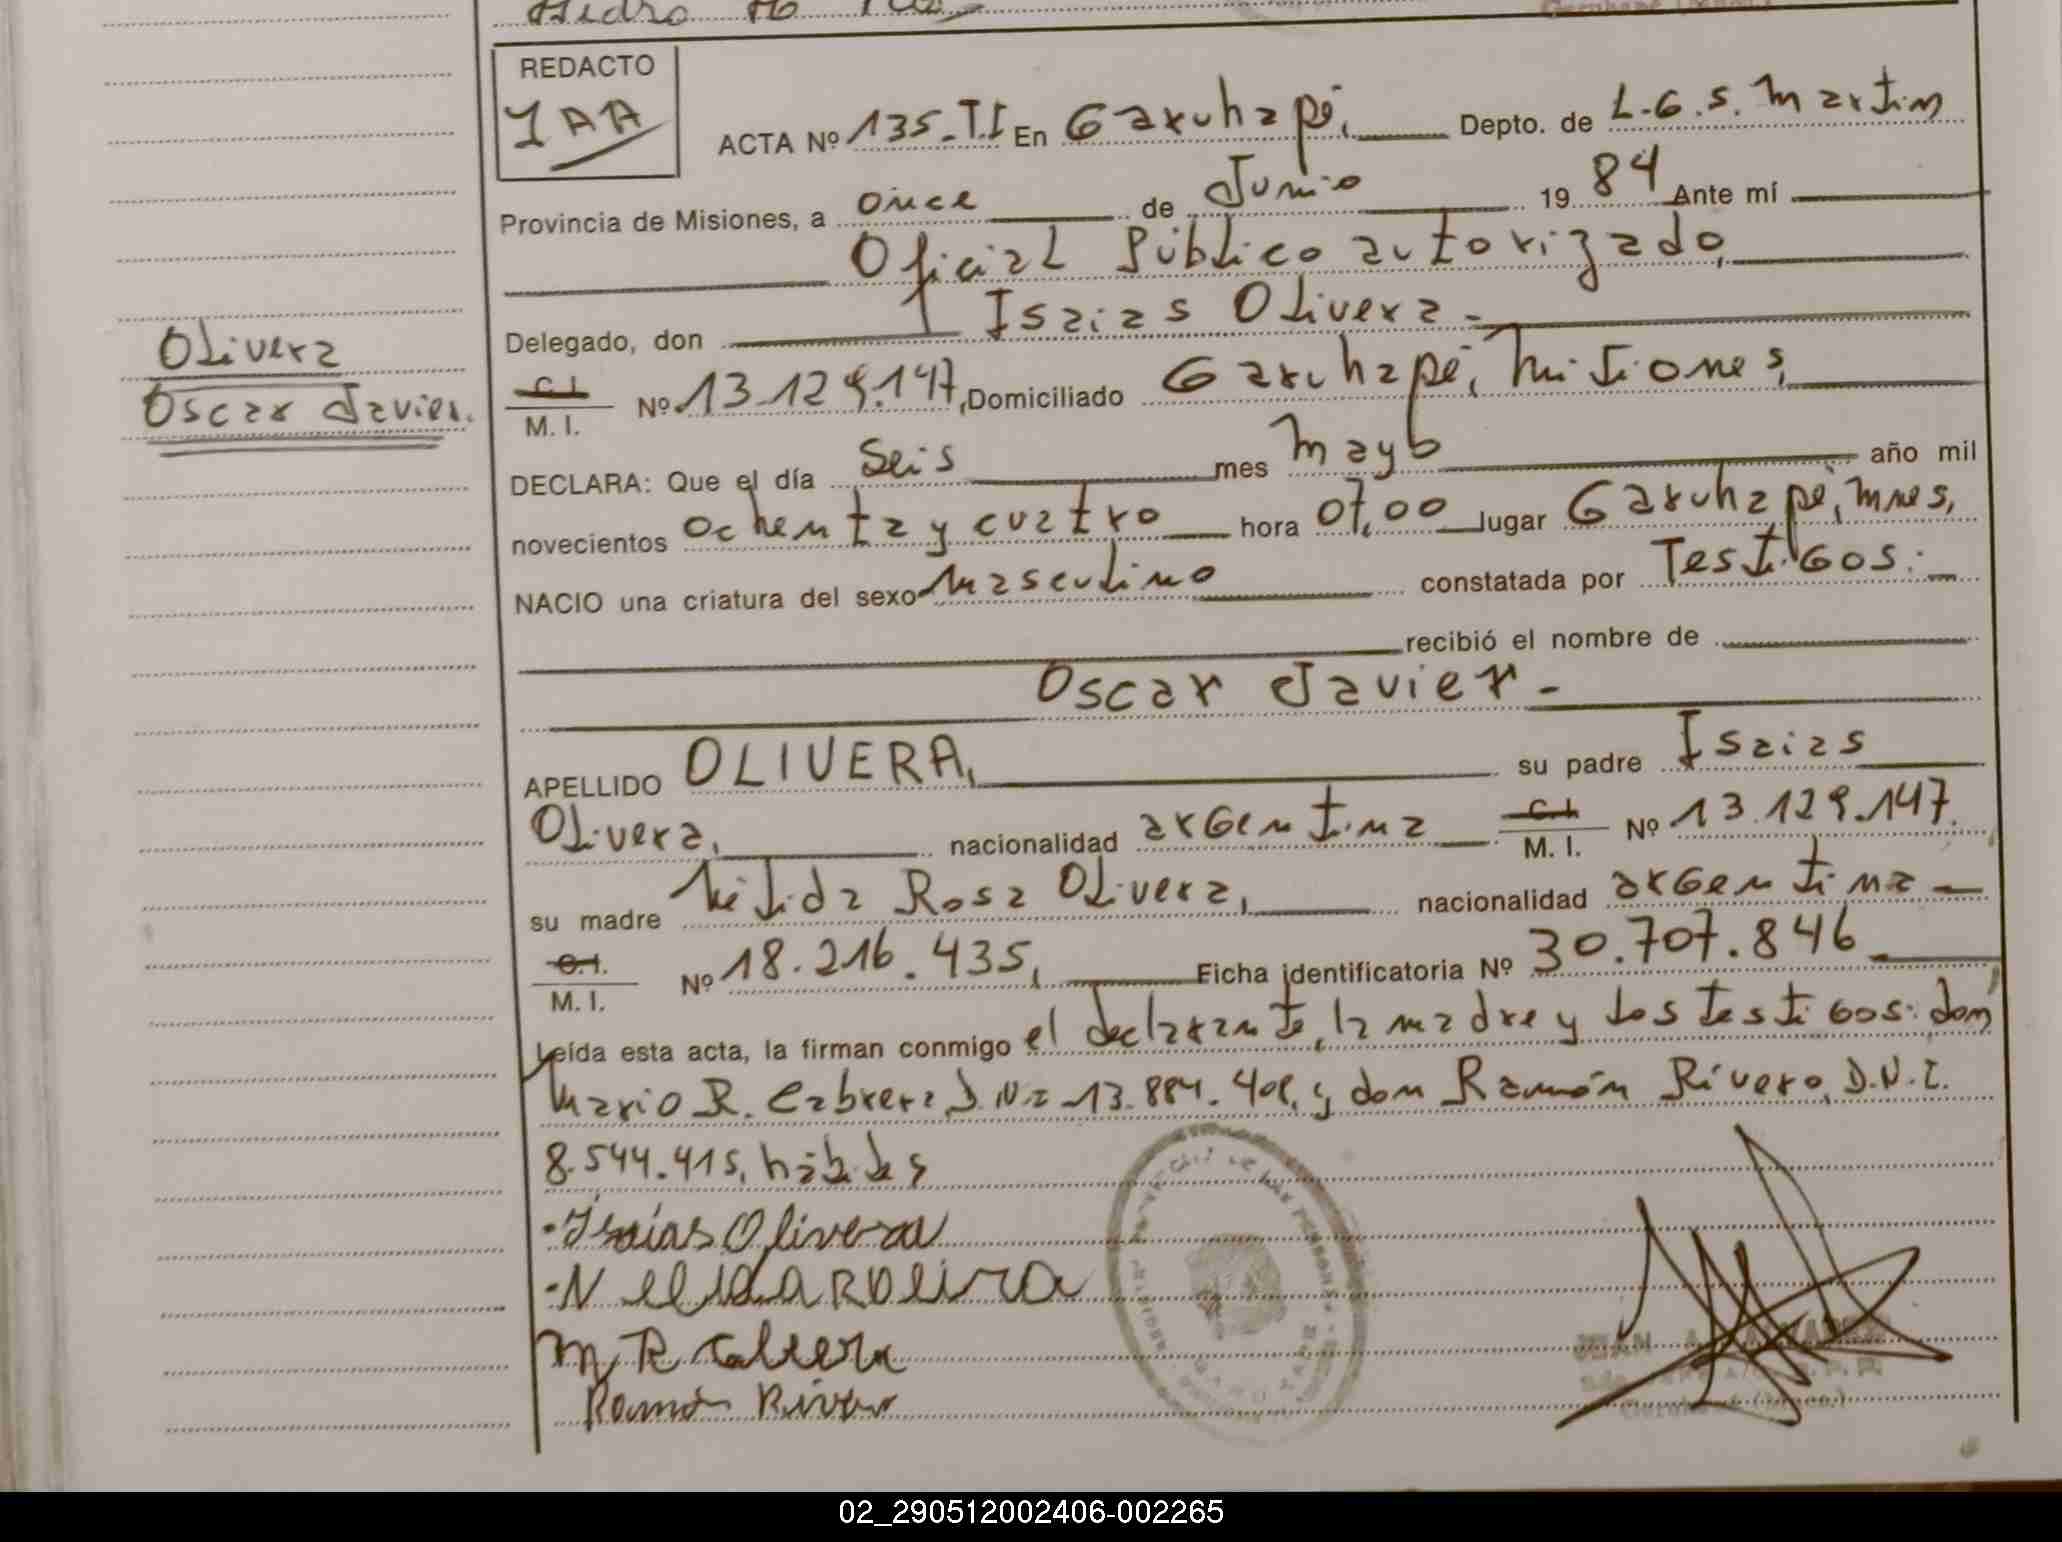 REDACTO
JAA
ACTA Nº 135-T.I En Garuhapé, Depto. de L.G.S. Martin
Provincia de Misiones, a once de Junio 19 84 Ante mí
Oficial Público autorizado,
Delegado, don Isaias Olivera -
C.I.
M. I. Nº 13.129.147, Domiciliado Garuhapé, Misiones,
Olivera
Oscar Javier.
DECLARA: Que el día Seis mes mayo año mil
novecientos ochenta y cuatro hora 07,00 lugar Garuhapé, Mnes,
NACIO una criatura del sexo masculino constatada por Testigos: -
recibió el nombre de
Oscar Javier -
APELLIDO OLIVERA, su padre Isaias
Olivera, nacionalidad argentina C.I. M. I. Nº 13.129.147.
su madre Nélida Rosa Olivera, nacionalidad argentina
C.I.
M. I. Nº 18.216.435, Ficha identificatoria Nº 30.707.846
Leída esta acta, la firman conmigo el declarante, la madre y los testigos: don
Mario R. Cabrera D.N.I 13.884.408, y don Ramón Rivero, D.N.I.
8.544.415, hábiles
Isaías Olivera
M R Cabrera
Ramón Rivero
02_290512002406-002265